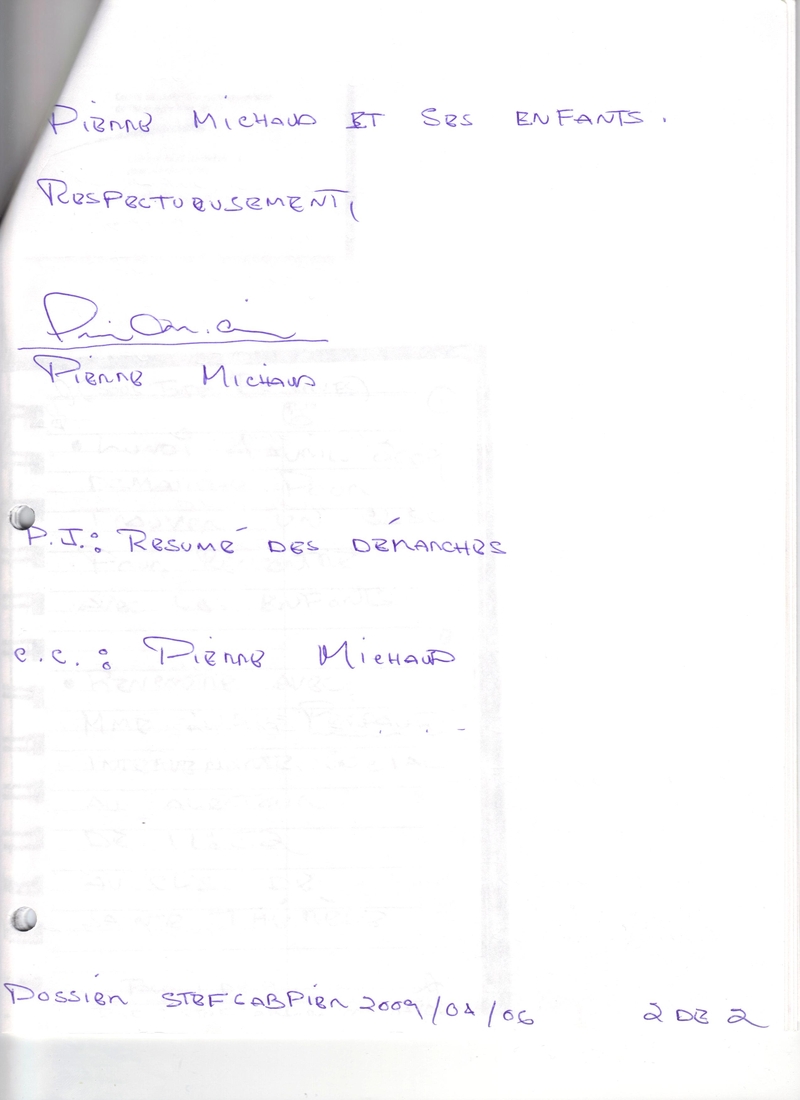 PIERRE MICHAUD ET SES ENFANTS.
RESPECTUEUSEMENT,
PIERRE MICHAUD
P.J.: RESUMÉ DES DÉMARCHES
c.c.: PIERRE MICHAUD
DOSSIER STEFGABPIER 2009/04/06 2 DE 2